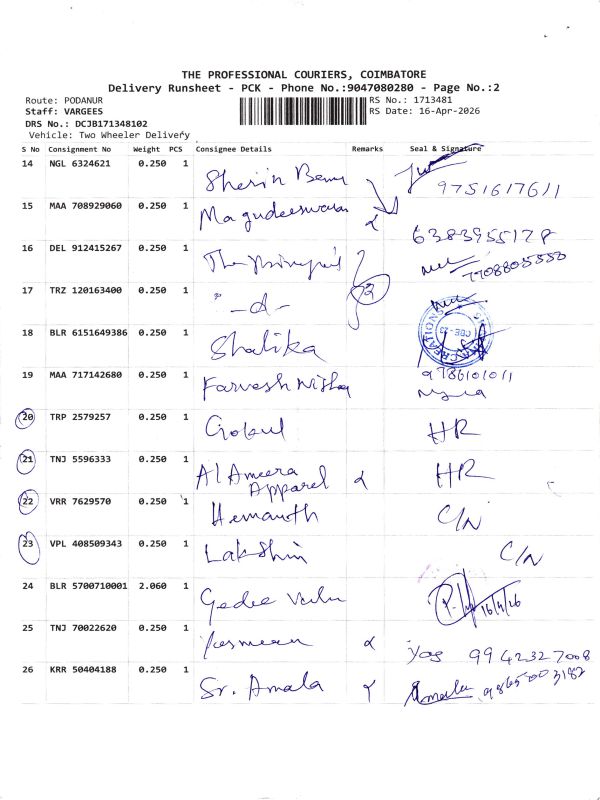 THE PROFESSIONAL COURIERS, COIMBATORE
Delivery Runsheet - PCK - Phone No.:9047080280 - Page No.:2
Route: PODANUR RS No.: 1713481
Staff: VARGEES RS Date: 16-Apr-2026
DRS No.: DCJB171348102
Vehicle: Two Wheeler Delivery
S No Consignment No Weight PCS Consignee Details Remarks Seal & Signature
14 NGL 6324621 0.250 1 Sherin 9751617611
15 MAA 708929060 0.250 1 Magudeeswaran 6383955178
16 DEL 912415267 0.250 1 The Principal 7708805550
17 TRZ 120163400 0.250 1 " -d- 2
18 BLR 6151649386 0.250 1 Shalika
19 MAA 717142680 0.250 1 Farvesh Nisha 9786101011
20 TRP 2579257 0.250 1 Gokul HR
21 TNJ 5596333 0.250 1 Al Ameera Apparel HR
22 VRR 7629570 0.250 1 Hemanth C/N
23 VPL 408509343 0.250 1 Lakshin C/N
24 BLR 5700710001 2.060 1 Gedee 16/4/26
25 TNJ 70022620 0.250 1 Yasmeen Yas 9942327008
26 KRR 50404188 0.250 1 Sr. Amala Amala 9865003182